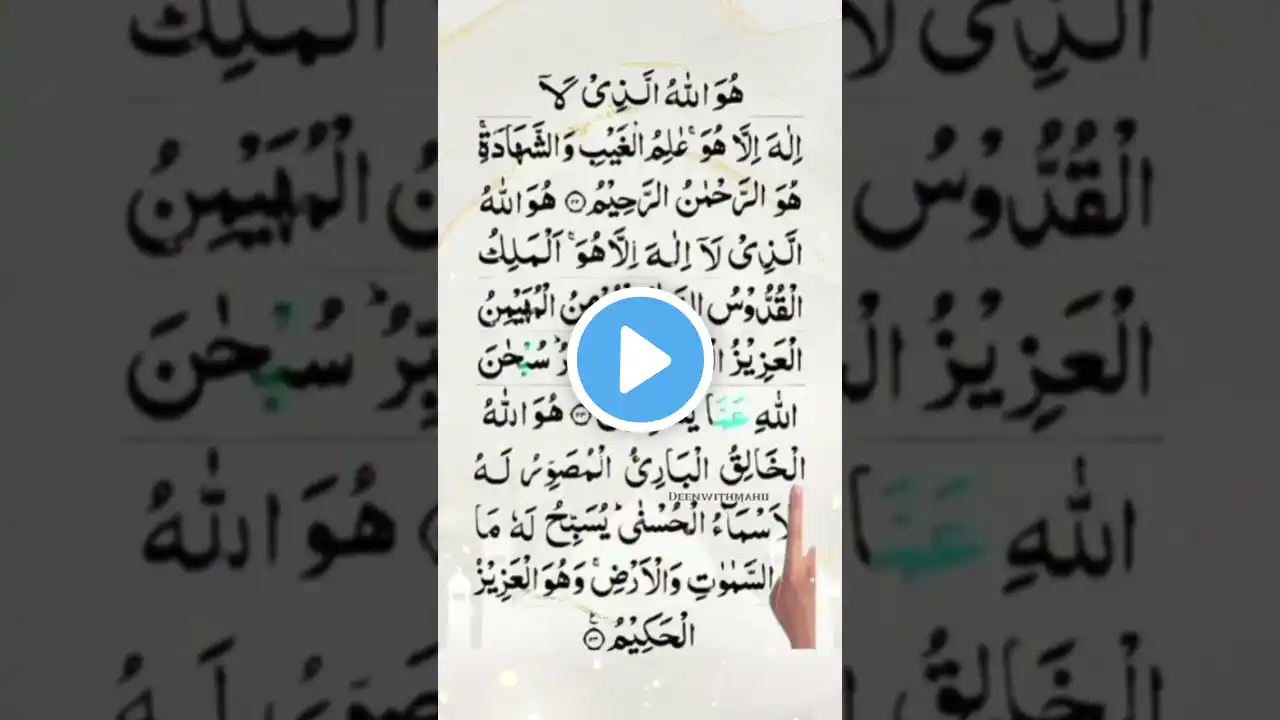 هُوَ اللّٰهُ الَّذِیْ لَآ
اِلٰهَ اِلَّا هُوَ ۚ عٰلِمُ الْغَیْبِ وَالشَّهَادَةِ ۚ
هُوَ الرَّحْمٰنُ الرَّحِیْمُ ۝۲۲ هُوَ اللّٰهُ
الَّذِیْ لَآ اِلٰهَ اِلَّا هُوَ ۚ اَلْمَلِكُ
الْقُدُّوْسُ الْمُهَیْمِنُ
الْعَزِیْزُ سُبْحٰنَ
اللّٰهِ عَمَّا هُوَ اللّٰهُ
الْخَالِقُ الْبَارِئُ الْمُصَوِّرُ لَهُ
DEENWITHMAHII
لْاَسْمَآءُ الْحُسْنٰی ؕ یُسَبِّحُ لَهٗ مَا
السَّمٰوٰتِ وَالْاَرْضِ ۚ وَهُوَ الْعَزِیْزُ
الْحَكِیْمُ